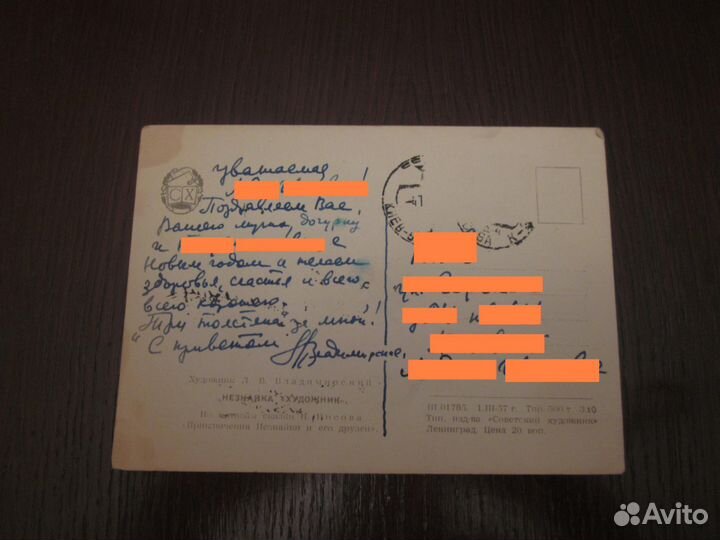 СХ
уважаемая
!
Поздравляем Вас,
Вашего мужа, дочурку
и с
Новым годом и желаем
здоровья, счастья и всего,
всего хорошего!
"Три толстяка" за мной!
С приветом Владимирские.
Художник Л. В. Владимирский
НЕЗНАЙКА-ХУДОЖНИК
По мотивам сказки Н. Носова
«Приключения Незнайки и его друзей».
КИЕВ
Ш 01785. 1.III-57 г. Тир. 500 т. З.10
Тип. изд-ва «Советский художник»
Ленинград. Цена 20 коп.
Avito